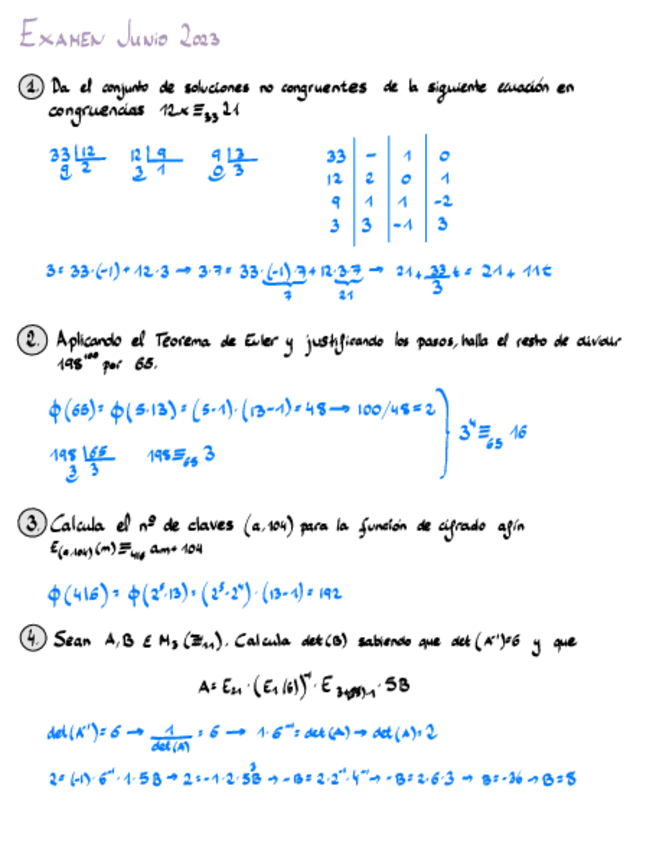 EXAMEN JUNIO 2023
1. Da el conjunto de soluciones no congruentes de la siguiente ecuación en
congruencias 12x ≡₃₃ 21
33 | 12   12 | 9   9 | 3
9 2   3 1   0 3
33 | - | 1 | 0
12 | 2 | 0 | 1
9 | 1 | 1 | -2
3 | 3 | -1 | 3
3 = 33·(-1) + 12·3 → 3·7 = 33·(-1)·7 + 12·3·7 → 21 + 33/3 t = 21 + 11t
7   21
2. Aplicando el Teorema de Euler y justificando los pasos, halla el resto de dividir
198¹⁰⁰ por 65.
ϕ(65) = ϕ(5·13) = (5-1)·(13-1) = 48 → 100/48 = 2
198 | 65   198 ≡₆₅ 3
3 3
3⁴ ≡₆₅ 16
3. Calcula el nº de claves (a,104) para la función de cifrado afín
E₍ₐ,₁₀₄₎(m) ≡₄₁₆ am + 104
ϕ(416) = ϕ(2⁵·13) = (2⁵-2⁴)·(13-1) = 192
4. Sean A, B ε M₃(ℤ₁₁). Calcula det(B) sabiendo que det(A⁻¹)=6 y que
A = E₂₁·(E₁(6))⁻¹·5B
det(A⁻¹) = 6 → 1/det(A) = 6 → 1·6⁻¹ = det(A) → det(A) = 2
2 = (-1)·6⁻¹·1·5B → 2 = -1·2·5³B → -B = 2·2⁻¹·4⁻¹ → -B = 2·6·3 → B = -36 → B = 8